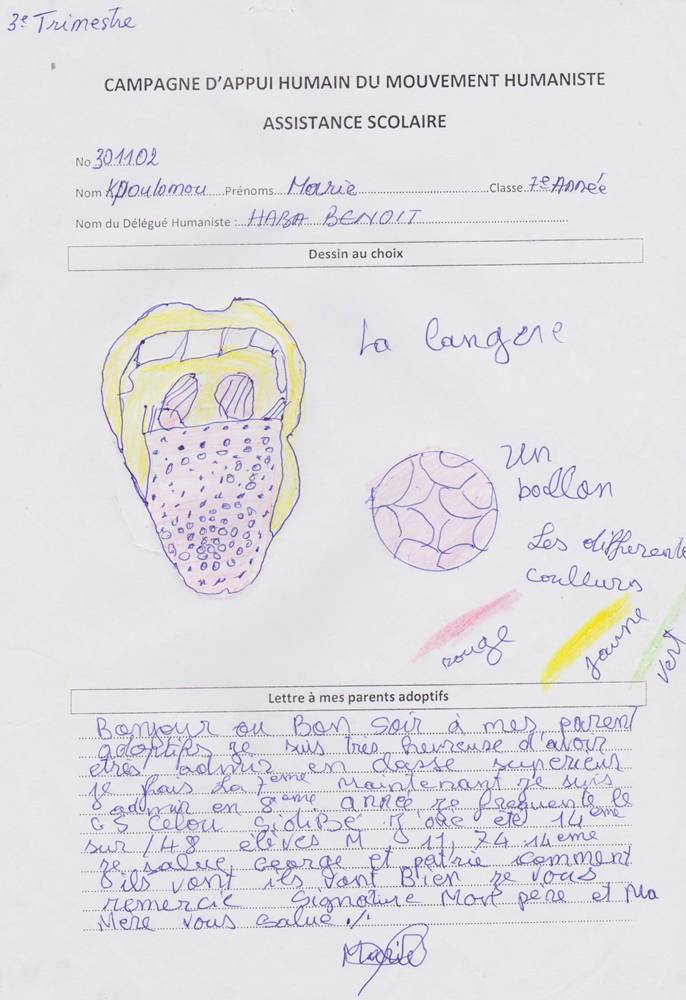 3e Trimestre
CAMPAGNE D'APPUI HUMAIN DU MOUVEMENT HUMANISTE
ASSISTANCE SCOLAIRE
No 301102
Nom Kpoulomou Prénoms Marie Classe 7e Année
Nom du Délégué Humaniste : HABA BENOIT
Dessin au choix
La langue
Un
ballon
Les differente
couleurs
rouge
jaune
vert
Lettre à mes parents adoptifs
Bonjour ou Bon Soir à mes parent
adoptifs je suis tres heureuse d'avoir
etres admir en classe superieur
je fais La 7eme maintenant je suis
admir en 8eme année je frequente le
G S Celou été 14eme
sur 148 élèves M 11,74 14eme
je salue George et patrie comment
ils vont ils vont Bien je vous
remercie Signature Mon père et Ma
Mere vous salue ./.
Marie